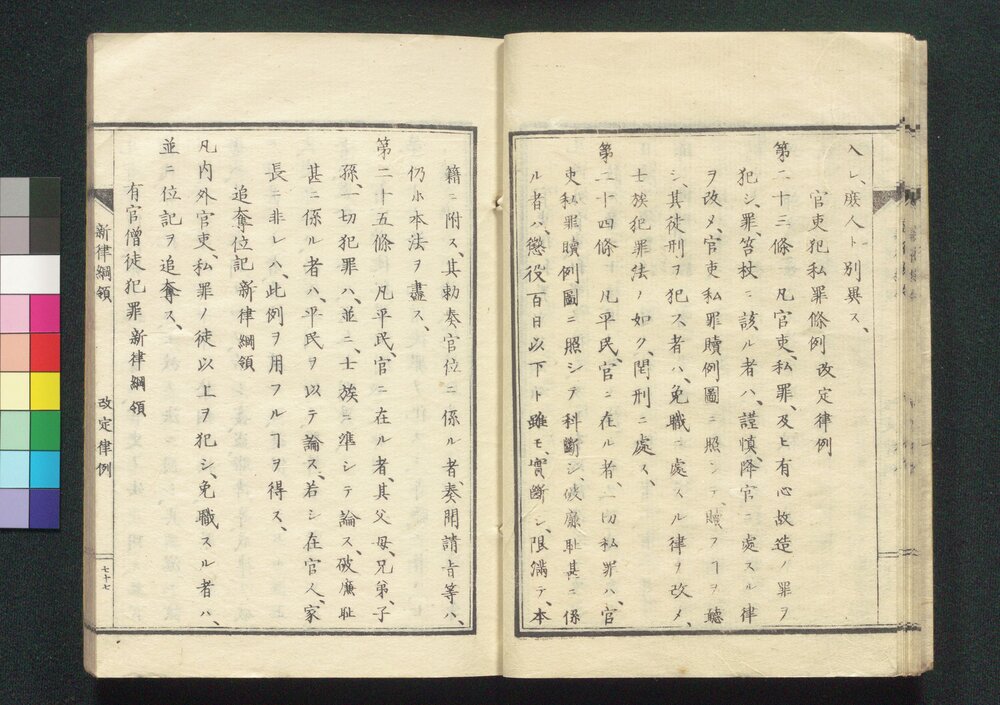 入レ、廢人ト別異ス、
官吏犯私罪條例 改定律例
第二十三條 凡官吏、私罪、及ヒ有心故造ノ罪ヲ
犯シ、罪、笞杖ニ該ル者ハ、謹愼、降官ニ處スル律
ヲ改メ、官吏私罪贖例圖ニ照シテ贖フヿヲ聽
シ、其徒刑ヲ犯ス者ハ、免職ニ處スル律ヲ改メ、
士族犯罪法ノ如ク、閏刑ニ處ス、
第二十四條 凡平民、官ニ在ル者、一切私罪ハ、官
吏私罪贖例圖ニ照シテ科斷シ、破廉耻甚ニ係
ル者ハ、懲役百日以下ト雖モ、實斷シ、限滿テ、本
籍ニ附ス、其勅奏官位ニ係ル者、奏聞請旨等ハ、
仍ホ本法ヲ盡ス、
第二十五條 凡平民、官ニ在ル者、其父母、兄弟、子
孫、一切犯罪ハ、並ニ、士族ニ準シテ論ス、破廉耻
甚ニ係ル者ハ、平民ヲ以テ論ス、若シ在官人、家
長ニ非レハ、此例ヲ用フルヿヲ得ス、
追奪位記 新律綱領
凡内外官吏、私罪ノ徒以上ヲ犯シ、免職スル者ハ、
並ニ位記ヲ追奪ス、
有官僧徒犯罪 新律綱領
新律綱領 改定律例 七十七